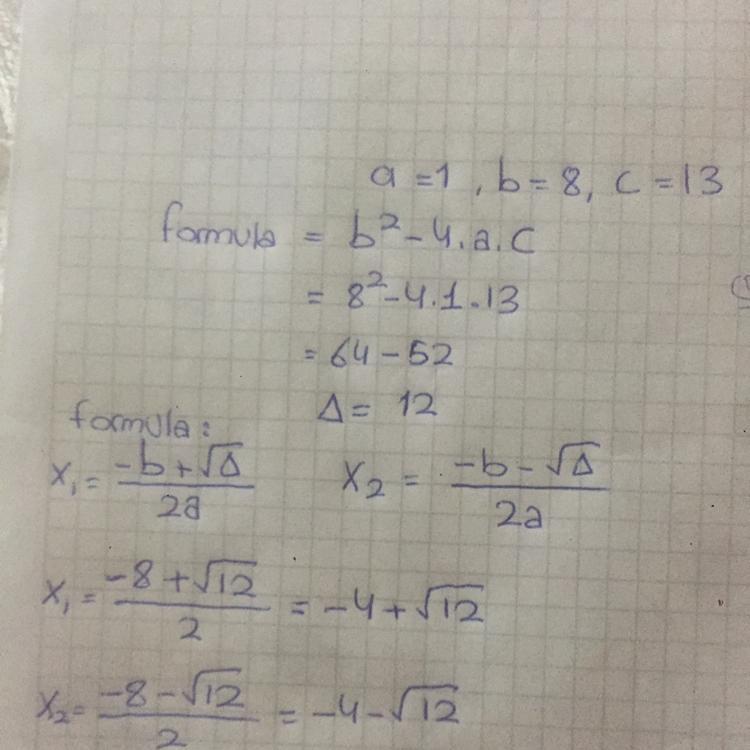 a = 1 , b = 8, c = 13
formula = b² - 4.a.c
= 8² - 4.1.13
= 64 - 52
Δ = 12
formula:
x₁ = (-b + √Δ)/2a x₂ = (-b - √Δ)/2a
x₁ = (-8 + √12)/2 = -4 + √12
x₂ = (-8 - √12)/2 = -4 - √12